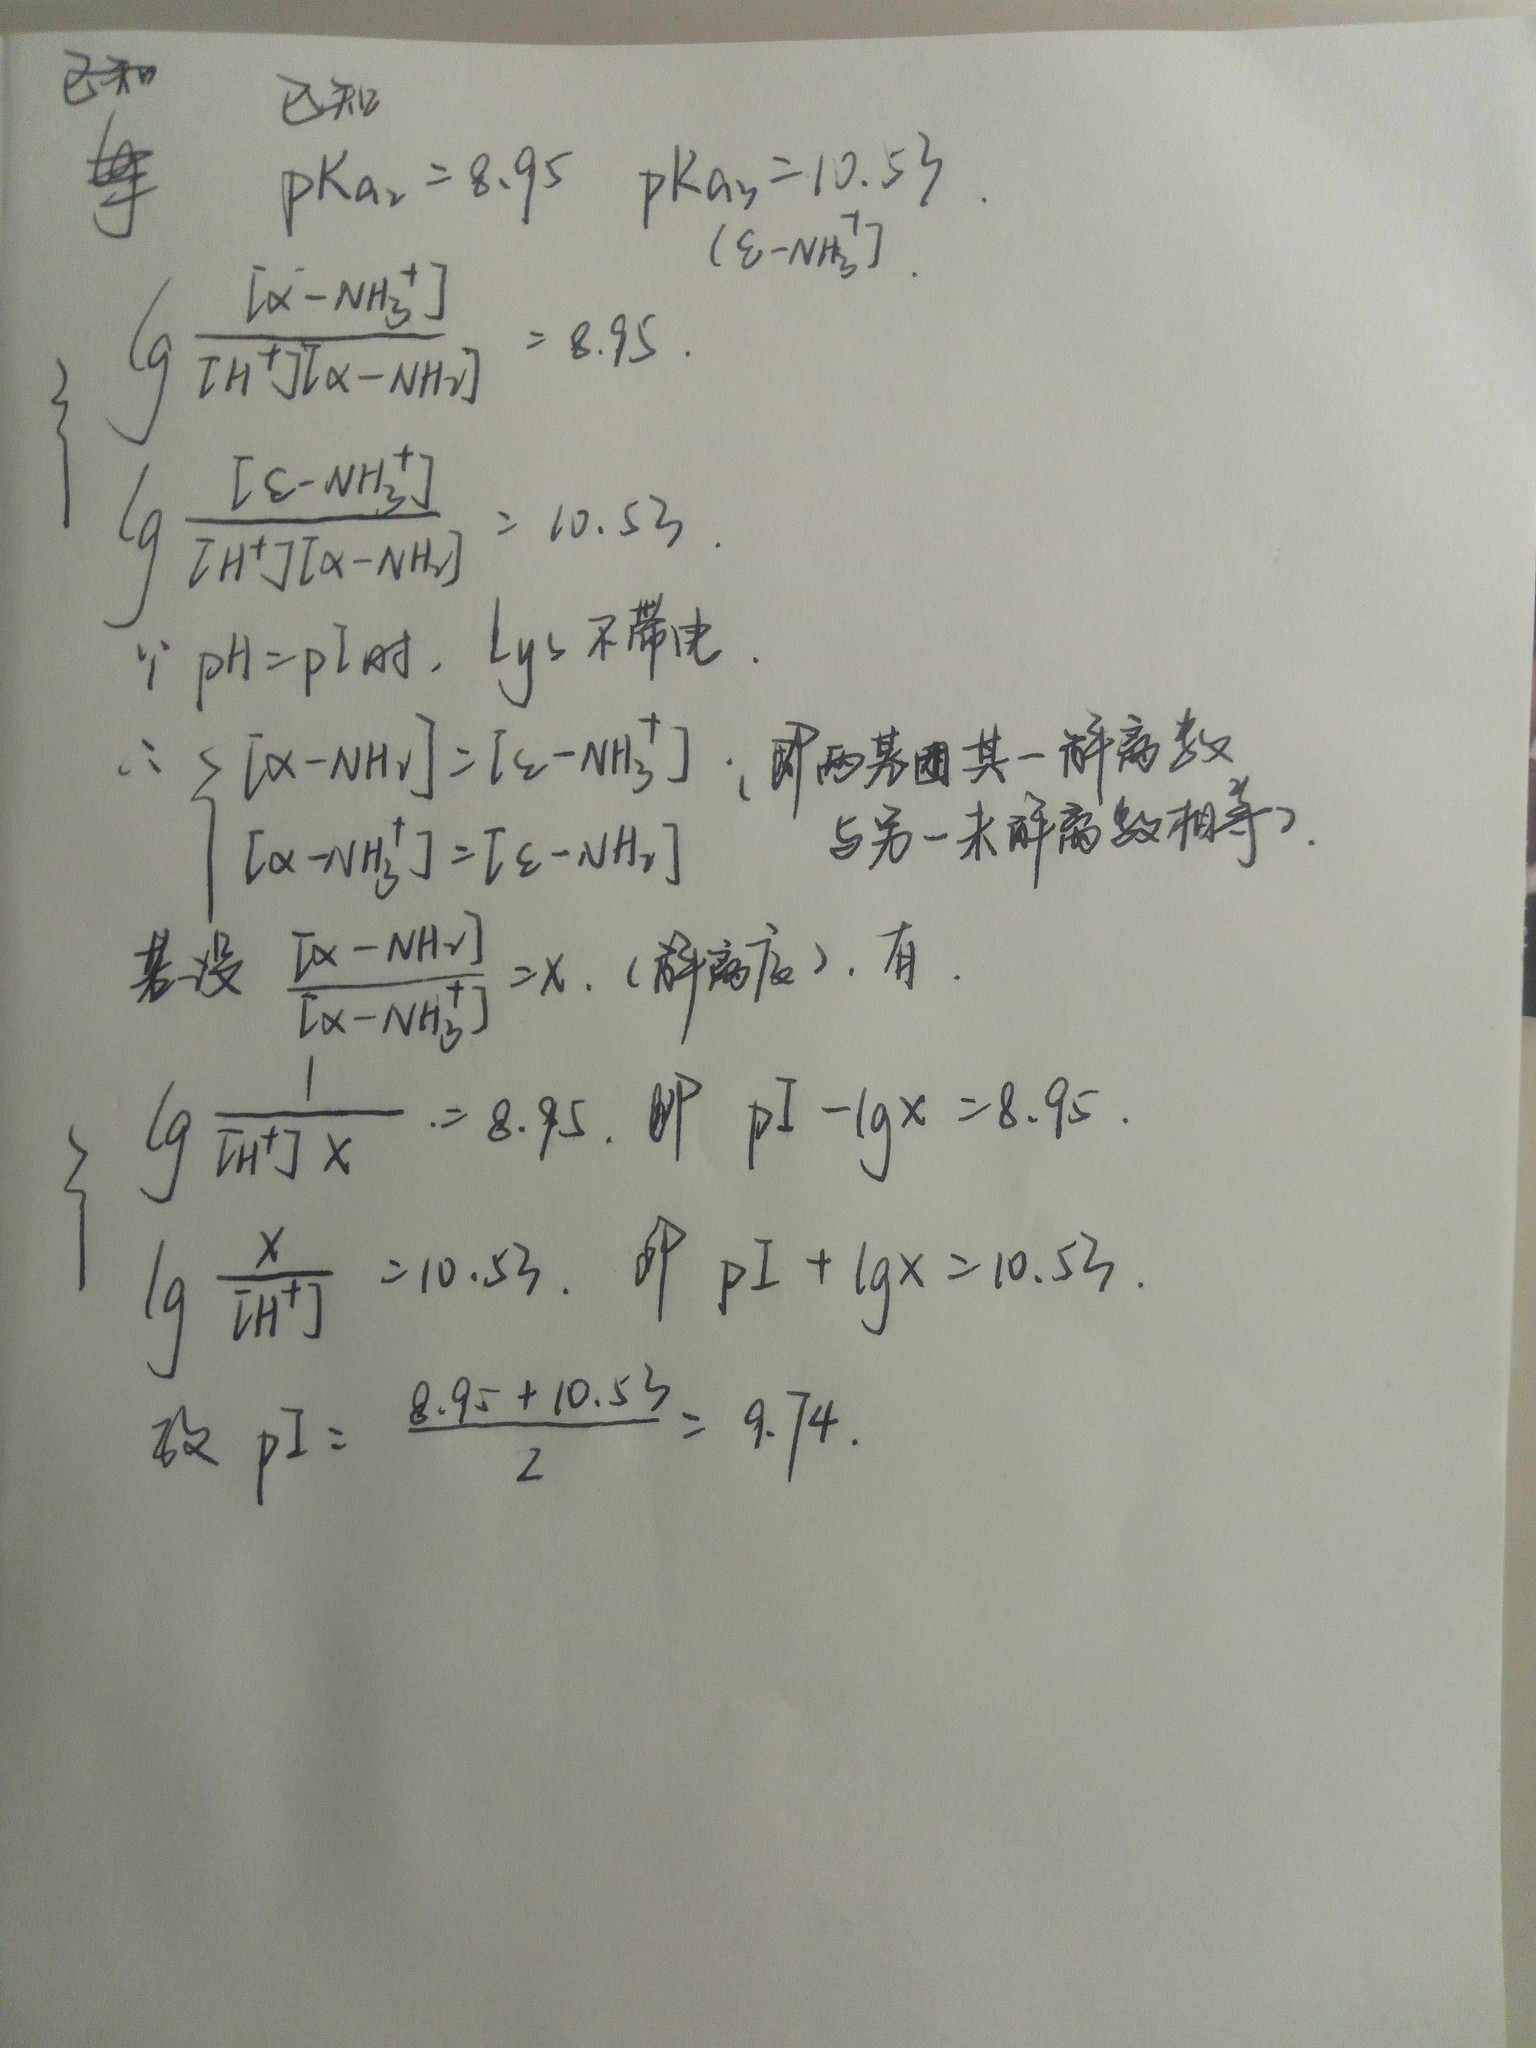 已知 已知
pKa₂=8.95 pKa₃=10.53.
(ε-NH₃⁺].
lg [α-NH₃⁺] / [H⁺][α-NH₂] = 8.95.
lg [ε-NH₃⁺] / [H⁺][α-NH₂] = 10.53.
∵ pH=pI时, Lys不带电.
∴ { [α-NH₂]=[ε-NH₃⁺]. (即两基团其一解离数
[α-NH₃⁺]=[ε-NH₂] 与另一未解离数相等).
若设 [α-NH₂] / [α-NH₃⁺] =x. (解离度). 有.
lg 1 / [H⁺] x = 8.95. 即 pI-lgx=8.95.
lg x / [H⁺] =10.53. 即 pI+lgx=10.53.
故 pI= 8.95+10.53 / 2 = 9.74.